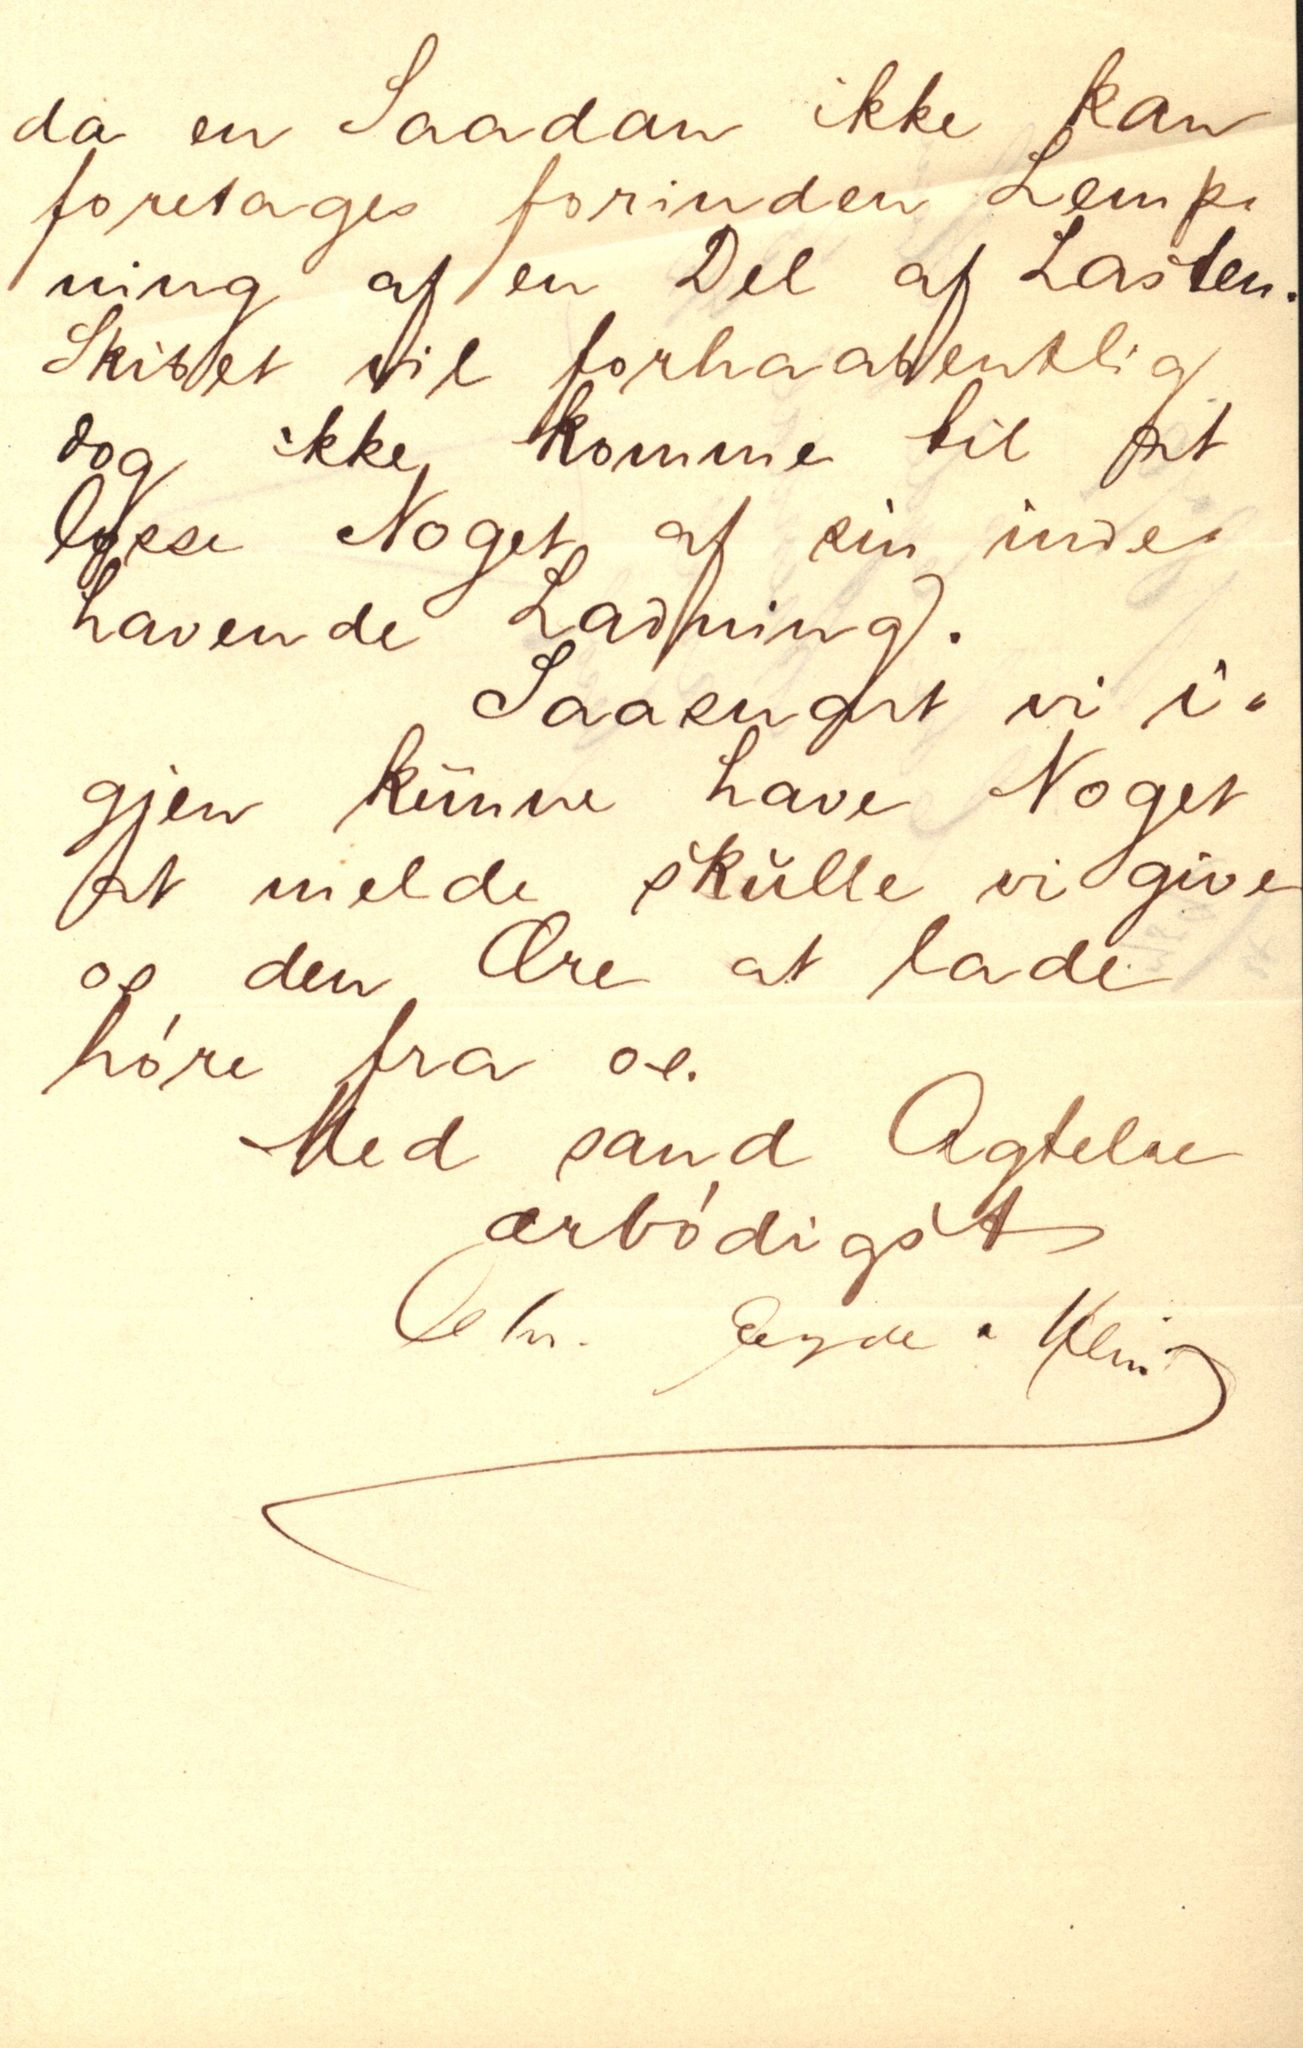 da en Saadan ikke kan
foretages forinden Lemp-
ning af en Del af Lasten.
Skibet vil forhaabentlig
dog ikke komme til at
losse Noget af sin inde-
havende Ladning.
Saasnart vi i-
gjen künne have Noget
at melde skŭlle vi give
os den Ære at lade
hóre fra os.
Med sand Agtelse
ærbódigst
Eyde